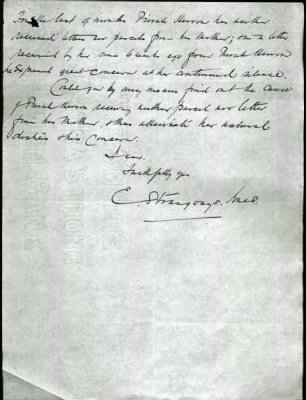 For the last of months Private Heron has neither
received letters nor parcels from his Mother; in a letter
received by her some 6 weeks ago from Private Heron
he expressed great concern at her continued silence.
Could you by any means find out the cause
of Private Heron receiving neither parcel nor letter
from his Mother & thus alleviate her natural
distress & his concern.
I am.
Faithfully yrs
E. Strangways